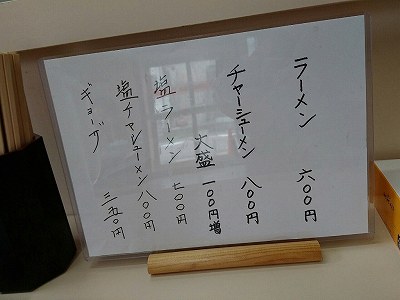 ラーメン 六〇〇円
チャーシューメン 八〇〇円
大盛 一〇〇円増
塩ラーメン 七〇〇円
塩チャシューメン 八〇〇円
ギョーザ 三五〇円